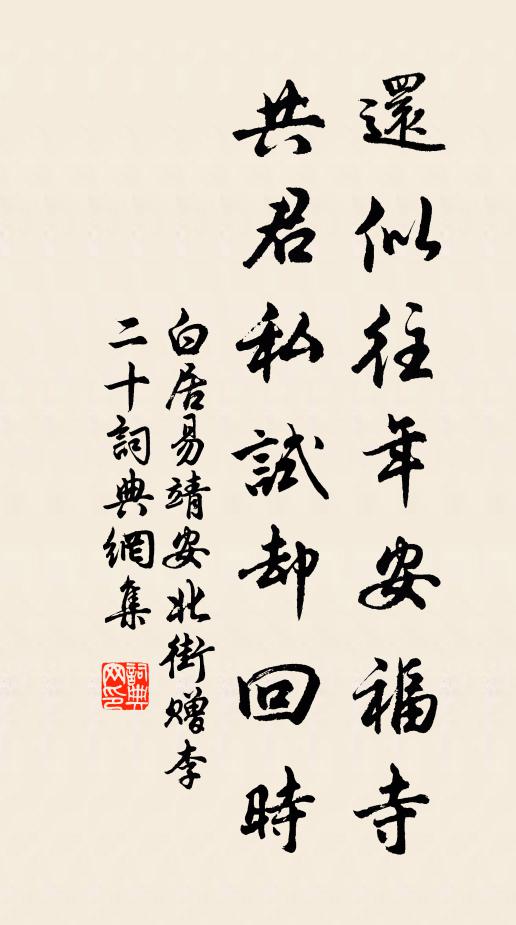 還似往年安福寺
共君私試却回時
白居易靖安北街赠李
二十詞典網集
詞典网印